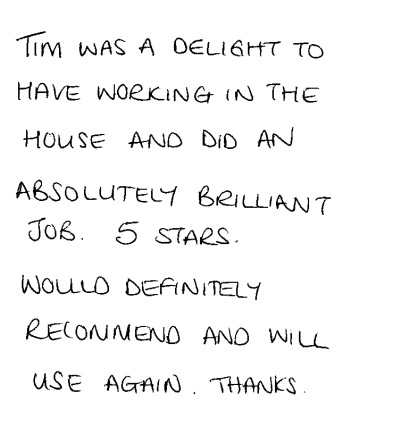 TIM WAS A DELIGHT TO
HAVE WORKING IN THE
HOUSE AND DID AN
ABSOLUTELY BRILLIANT
JOB. 5 STARS.
WOULD DEFINITELY
RECOMMEND AND WILL
USE AGAIN. THANKS.